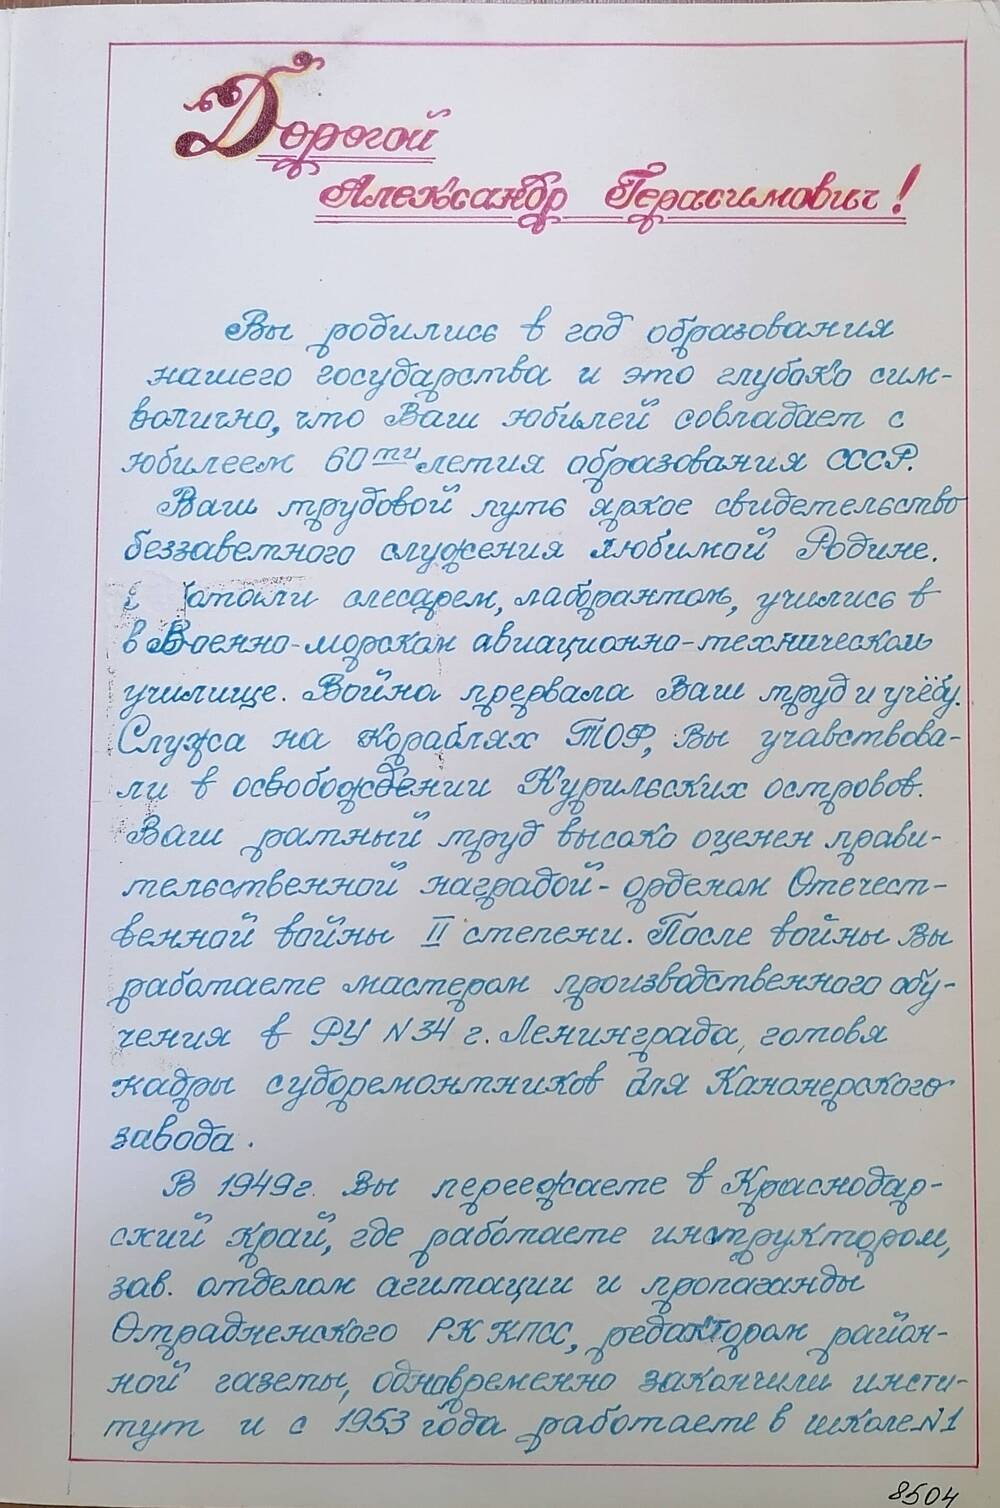 Дорогой
Александр Герасимович!
Вы родились в год образования
нашего государства и это глубоко сим-
волично, что Ваш юбилей совпадает с
юбилеем 60ти летия образования СССР.
Ваш трудовой путь яркое свидетельство
беззаветного служения любимой Родине.
слесарем, лаборантом, учились в
в Военно-морском авиационно-техническом
училище. Война прервала Ваш труд и учёбу.
Служа на кораблях ТОФ, Вы учавствова-
ли в освобождении Курильских островов.
Ваш ратный труд высоко оценен прави-
тельственной наградой - орденом Отечест-
венной войны II степени. После войны Вы
работаете мастером производственного обу-
чения в РУ N 34 г. Ленинграда, готовя
кадры судоремонтников для Канонерского
завода.
В 1949г. Вы переежаете в Краснодар-
ский край, где работаете инструктором,
зав. отделом агитации и пропаганды
Отрадненского РК КПСС, редактором район-
ной газеты, одновременно закончили инсти-
тут и с 1953 года работаете в школе N1
8504